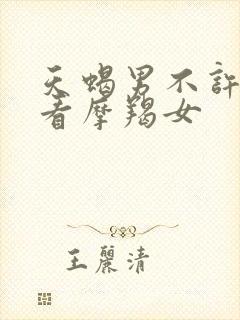 天蝎男不許
看摩羯女
王麗清